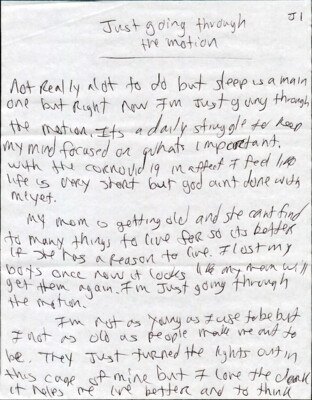 Just going through
the motion
J1
Not Really alot to do but sleep is a main
one but Right now I'm Just going through
the motion. Its a daily struggle to keep
my mind focused on whats important.
with the cornovid 19 in affect I feel like
life is very short but god aint done with
me yet.
My mom is getting old and she cant find
to many things to live for so its better
if she has a reason to live. I lost my
boys once now it looks like my mom will
get them again. I'm Just going through
the motion.
I'm not as young as I use to be but
I not as old as people make me out to
be. They Just turned the lights out in
this cage of mine but I love the dark
it helps me live better and to think